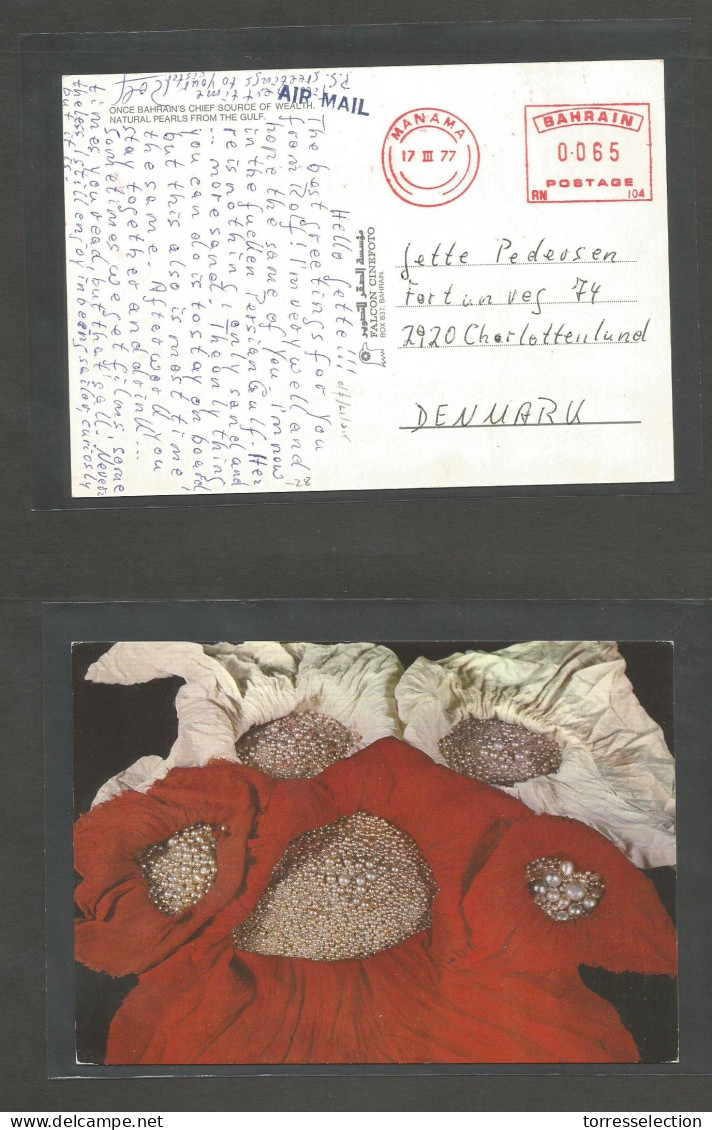 ONCE BAHRAIN'S CHIEF SOURCE OF WEALTH.
NATURAL PEARLS FROM THE GULF.
AIR MAIL
MANAMA
17 III 77
BAHRAIN
0·065
POSTAGE
RN 104
Hello Jette!!!
The best greetings for you
from Rolf! I'm very well and
hope the same of you. I'm now
in the fucken Persian Gulf. Her
re is nothing, only sand and
... more sand. The only thing
you can do is to stay on board
but this also is most time
the same. Afterwork you
stay together and drink...
Sometimes we get films, some
times you read, but that's all. Nevert
theless, still enjoy in being sailor, curiosly
but it is.
best time
Rolf
P.S. greetings to your sister
مؤسسة الصقر للتصوير
FALCON CINEFOTO
BOX 837, BAHRAIN
Jette Pedersen
Fortunvej 74
2920 Charlottenlund
DENMARK
-28
torresselection